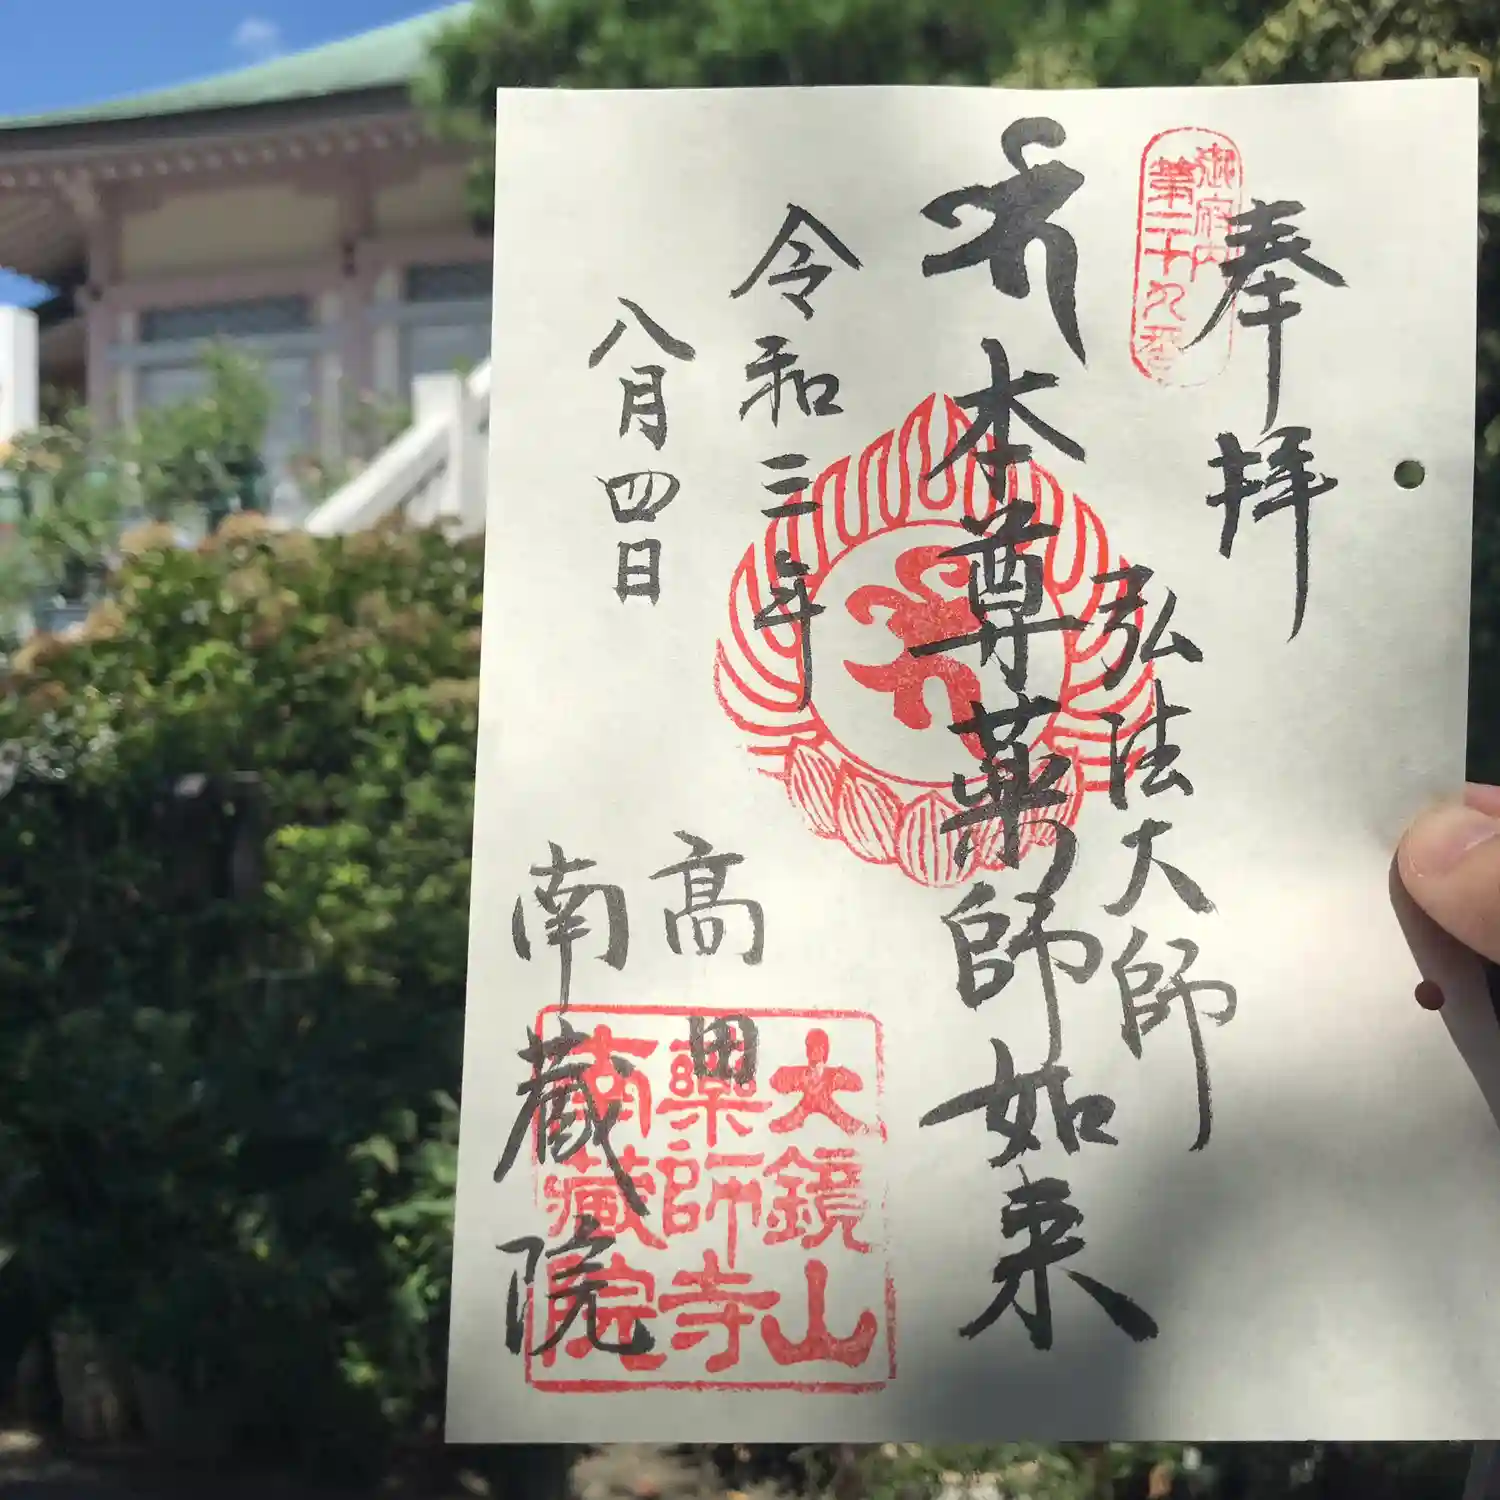 奉拝
御府内
第二十九番
弘法大師
本尊薬師如来
令和三年
八月四日
高田
南蔵院
大鏡山
薬師寺
南蔵院